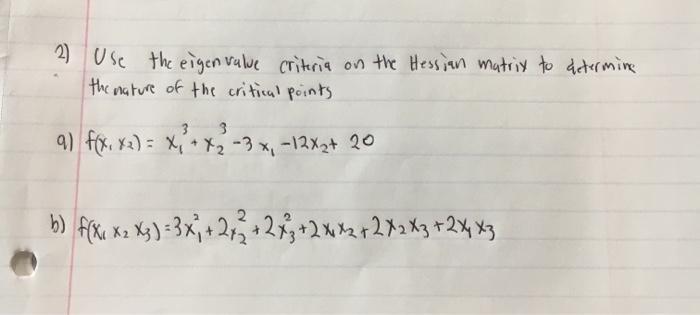 2) Use the eigenvalue criteria on the Hessian matrix to determine
the nature of the critical points
a) f(x₁ x₂) = x₁³ + x₂³ - 3x₁ - 12x₂ + 20
b) f(x₁ x₂ x₃) = 3x₁² + 2x₂² + 2x₃² + 2x₁x₂ + 2x₂x₃ + 2x₁x₃